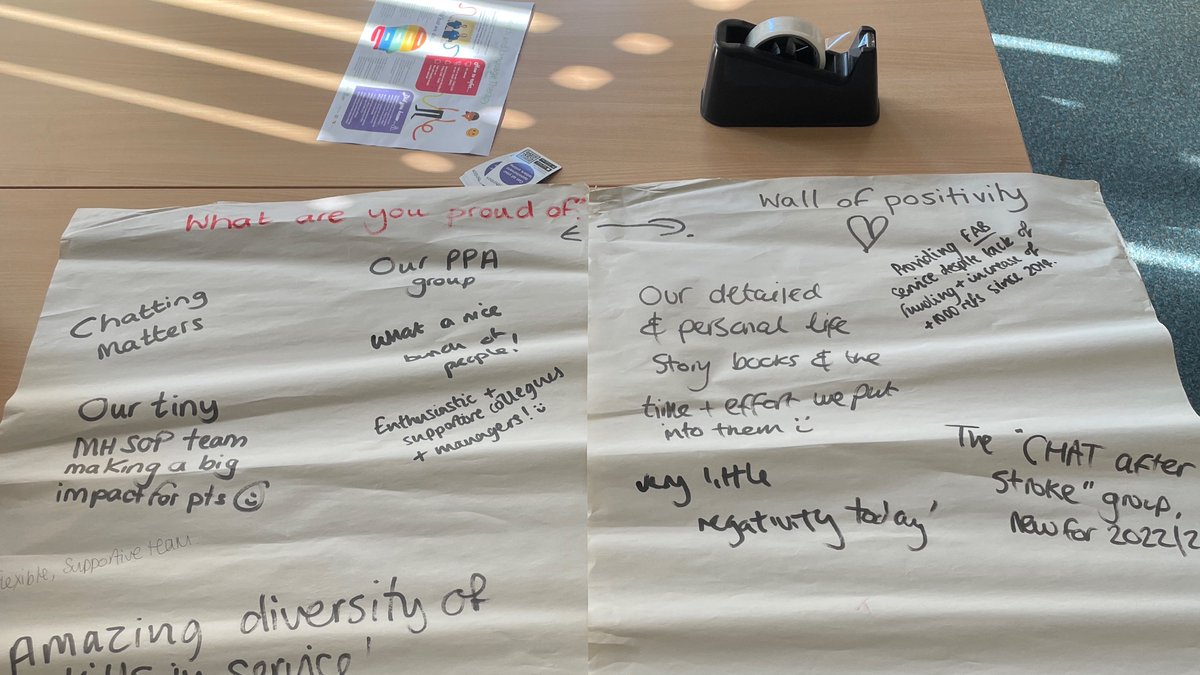 What are you proud of?
Our PPA
group
Chatting
Matters
What a nice
bunch of
people!
Our tiny
MHSOP team
making a big
impact for pts
Enthusiastic +
supportive collegues
+ managers!
Flexible, Supportive team
Amazing diversity of
skills in service!
Wall of positivity
Providing FAB
service despite lack of
funding + increase of
+1000 r/s since 2019.
Our detailed
& personal life
Story books & the
time + effort we put
into them
very little
negativity today'
The "CHAT after
stroke" group,
new for 2022/2